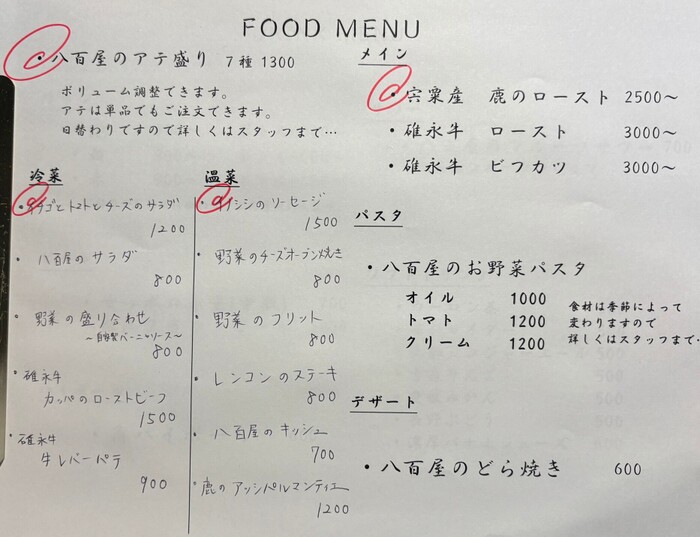 FOOD MENU
・八百屋のアテ盛り 7種 1300
ボリューム調整できます。
アテは単品でもご注文できます。
日替わりですので詳しくはスタッフまで…
冷菜
・イチゴとトマトとチーズのサラダ
1200
・八百屋のサラダ
800
・野菜の盛り合わせ
～自家製バーニャソース～
800
・碓永牛
カッパのローストビーフ
1500
・碓永牛
牛レバーパテ
900
温菜
・イノシシのソーセージ
1500
・野菜のチーズオーブン焼き
800
・野菜のフリット
800
・レンコンのステーキ
800
・八百屋のキッシュ
700
・鹿のアッシパルマンティエ
1200
メイン
・宍粟産 鹿のロースト 2500～
・碓永牛 ロースト 3000～
・碓永牛 ビフカツ 3000～
パスタ
・八百屋のお野菜パスタ
オイル 1000
トマト 1200
クリーム 1200
食材は季節によって
変わりますので
詳しくはスタッフまで…
デザート
・八百屋のどら焼き 600